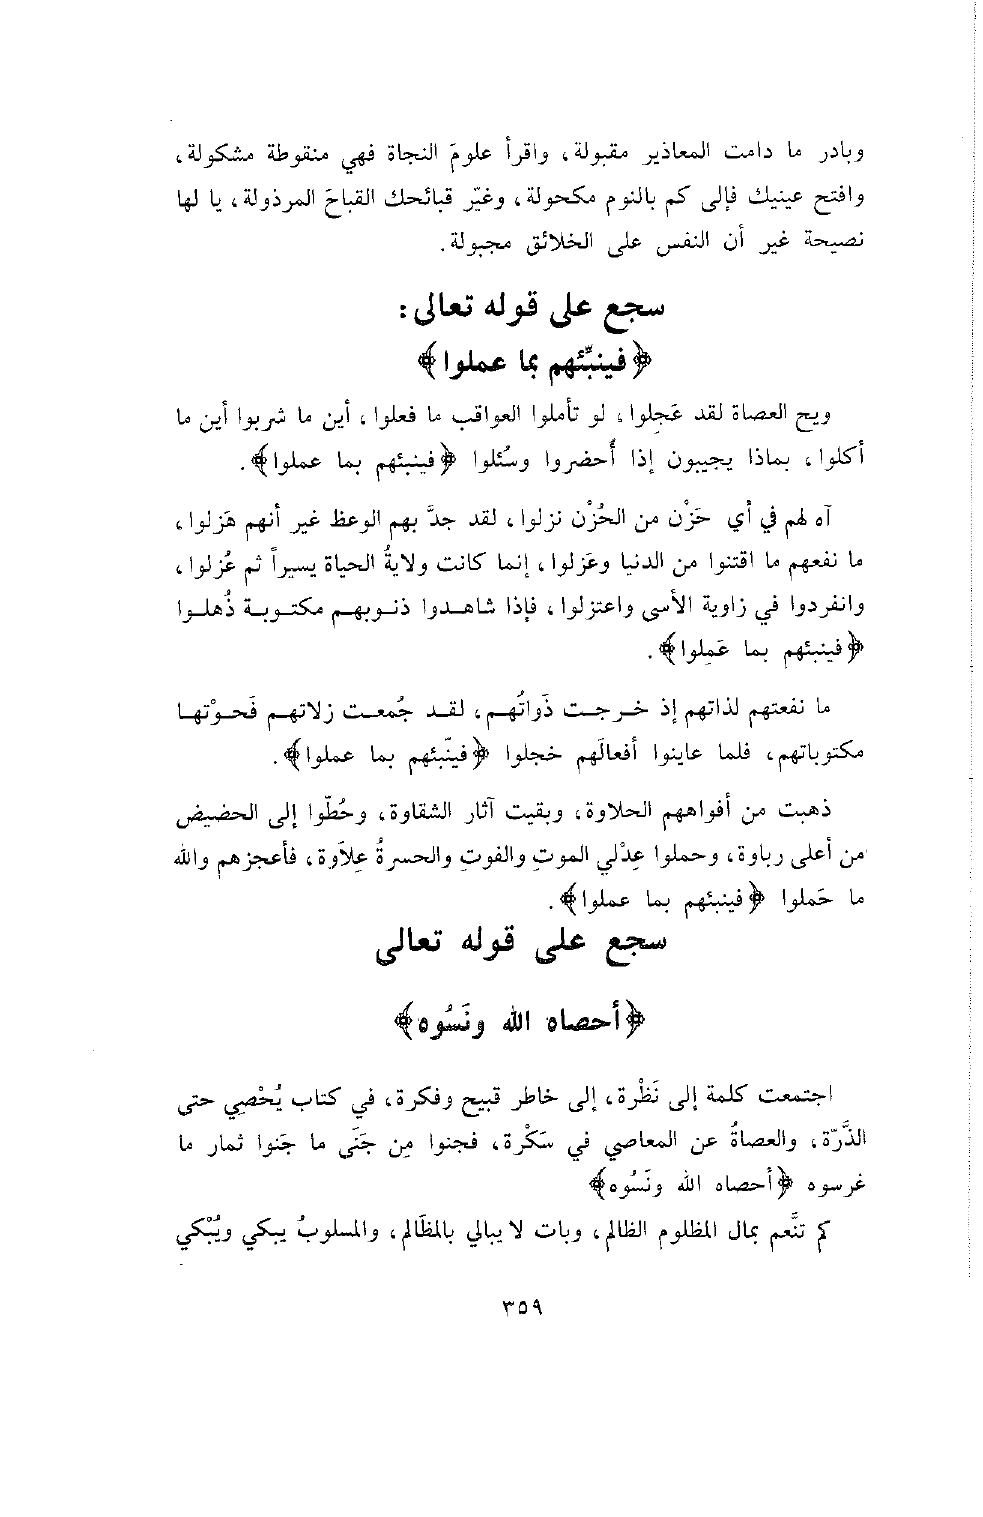 وبادر ما دامت المعاذير مقبولة، واقرأ علومَ النجاة فهي منقوطة مشكولة،
وافتح عينيك فإلى كم بالنوم مكحولة، وغيّر قبائحك القباحَ المرذولة، يا لها
نصيحة غير أن النفس على الخلائق مجبولة.
سجع على قوله تعالى:
﴿فينبّئهم بما عملوا﴾
ويح العصاة لقد عَجِلوا، لو تأملوا العواقب ما فعلوا، أين ما شربوا أين ما
أكلوا، بماذا يجيبون إذا أُحضروا وسُئلوا ﴿فينبئهم بما عملوا﴾.
آه لهم في أي حَزْن من الحُزْن نزلوا، لقد جدَّ بهم الوعظ غير أنهم هَزلوا،
ما نفعهم ما اقتنوا من الدنيا وعَزلوا، إنما كانت ولايةُ الحياة يسيراً ثم عُزلوا،
وانفردوا في زاوية الأسى واعتزلوا، فإذا شاهدوا ذنوبهم مكتوبة ذُهلوا
﴿فينبئهم بما عَمِلوا﴾.
ما نفعتهم لذاتهم إذ خرجت ذَواتُهم، لقد جُمعت زلاتهم فَحوْتها
مكتوباتهم، فلما عاينوا أفعالَهم خجلوا ﴿فينّبئهم بما عملوا﴾.
ذهبت من أفواههم الحلاوة، وبقيت آثار الشقاوة، وحُطّوا إلى الحضيض
من أعلى رباوة، وحملوا عِدْلي الموتِ والفوتِ والحسرةُ عِلاَوة، فأعجزهم والله
ما حَملوا ﴿فينبئهم بما عملوا﴾.
سجع على قوله تعالى
﴿أحصاه الله ونَسُوه﴾
اجتمعت كلمة إلى نَظْرة، إلى خاطر قبيح وفكرة، في كتاب يُحْصِي حتى
الذَّرّة، والعصاةُ عن المعاصي في سَكْرة، فجنوا مِن جَنَى ما جَنوا ثمار ما
غرسوه ﴿أحصاه الله ونَسُوه﴾
كم تنَّعم بمال المظلوم الظالم، وبات لا يبالي بالمظَالم، والمسلوبُ يبكي ويُبْكي
٣٥٩